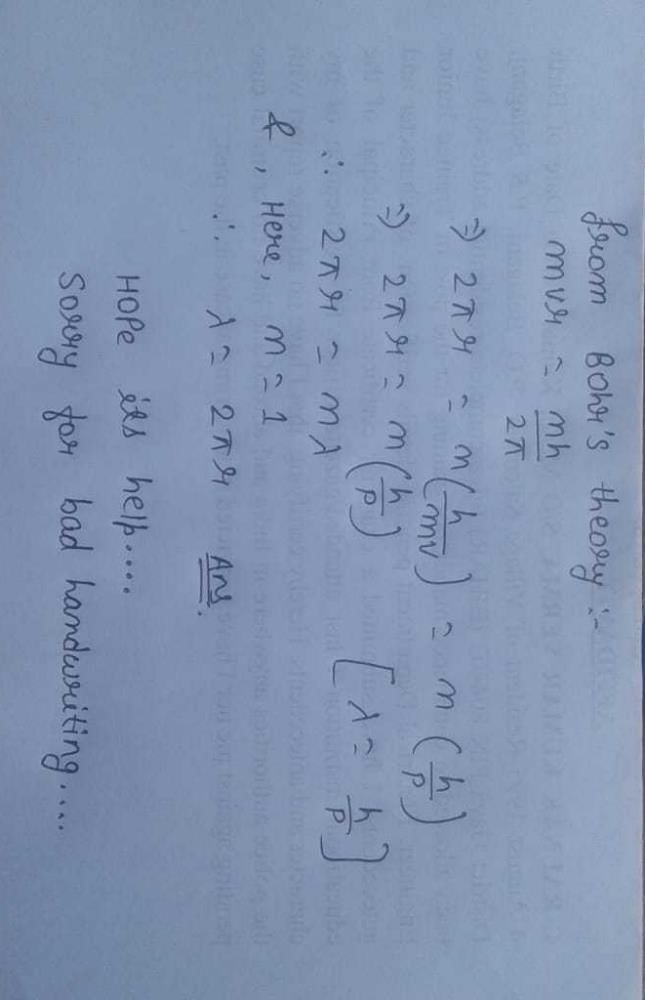 from Bohr's theory :-
mvr = nh/2π
⇒ 2πr = n(h/mv) = n(h/p)
⇒ 2πr = n(h/p) [λ = h/p]
∴ 2πr = nλ
&, Here, n = 1
∴ λ = 2πr Ans.
HOPe its help....
Sorry for bad handwriting....